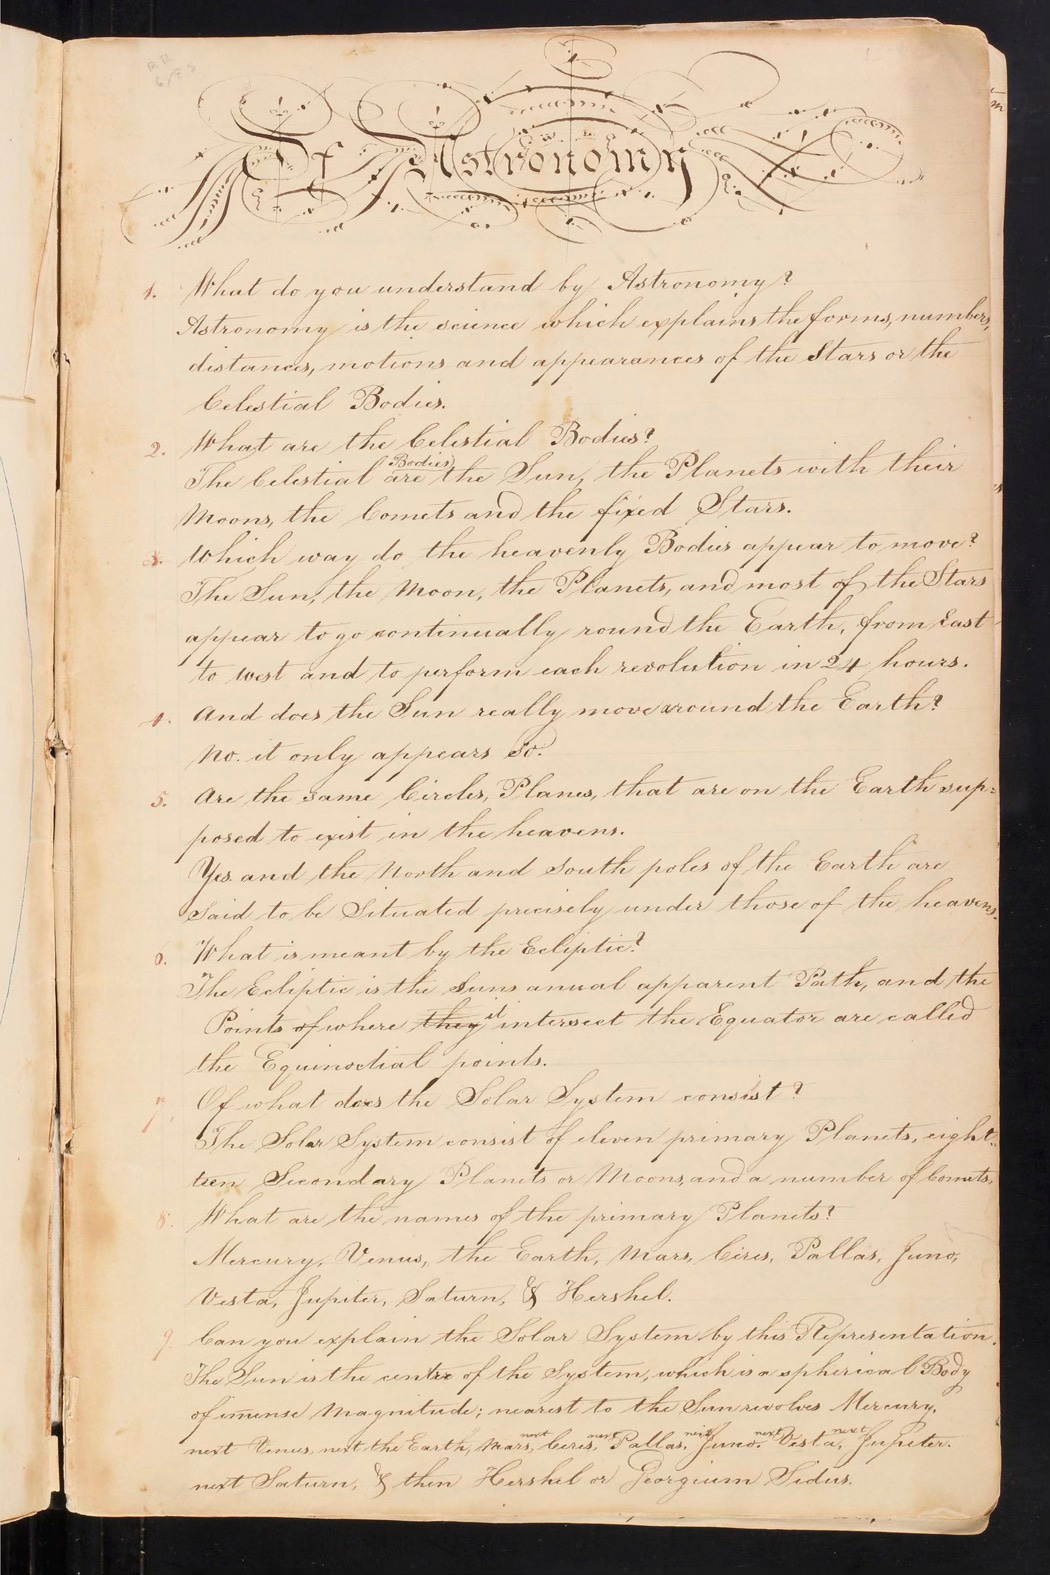 Of Astronomy
1. What do you understand by Astronomy?
Astronomy is the science which explains the forms, numbers,
distances, motions and appearances of the Stars or the
Celestial Bodies.
2. What are the Celestial Bodies?
Bodies
The Celestial are the Sun, the Planets with their
Moons, the Comets and the fixed Stars.
3. Which way do the heavenly Bodies appear to move?
The Sun, the Moon, the Planets, and most of the Stars
appear to go continually round the Earth, from East
to west and to perform each revolution in 24 hours.
4. And does the Sun really move around the Earth?
No. it only appears so.
5. Are the same Circles, Planes, that are on the Earth sup=
posed to exist in the heavens.
Yes. and the North and South poles of the Earth are
Said to be Situated precisely under those of the heavens.
6. What is meant by the Ecliptic?
The Ecliptic is the Suns anual apparent Path, and the
it
Points of where they intersect the Equator are called
the Equinoctial points.
7. Of what does the Solar System consist?
The Solar System consist of eleven primary Planets, eigh-
teen Secondary Planets or Moons, and a number of Comets.
8. What are the names of the primary Planets?
Mercury, Venus, the Earth, Mars, Ceres, Pallas, Juno,
Vesta, Jupiter, Saturn, & Hershel.
9. Can you explain the Solar System by this Representation.
The Sun is the centre of the System, which is a spherical Body
of imense Magnitude; nearest to the Sun revolves Mercury,
next next next next next
next Venus, next the Earth, Mars, Ceres, Pallas, Juno, Vesta, Jupiter.
next Saturn, & then Hershel or Georgium Sidus.